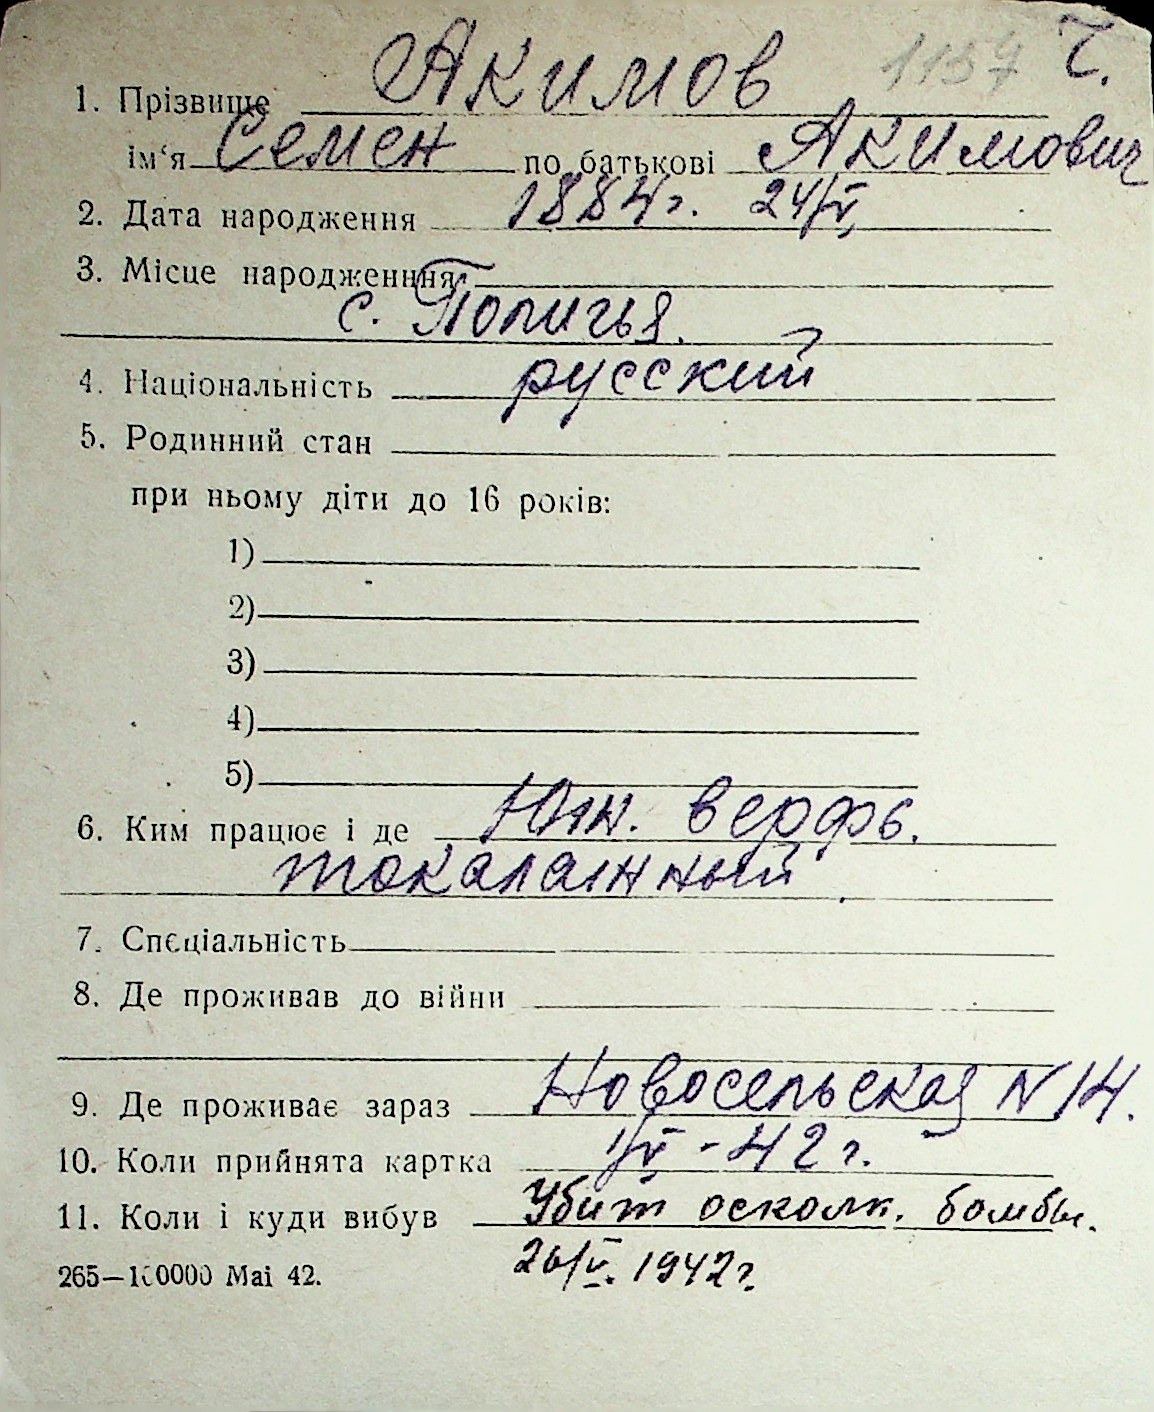 1157 Č.
1. Прізвище Акимов
ім‘я Семен по батькові Акимович
2. Дата народження 1884г. 24/V,
3. Місце народженння
с.
4. Національність русский
5. Родинний стан
при ньому діти до 16 років:
1)
2)
3)
4)
5)
6. Ким працює і де Юж. верфь.
7. Спеціальність
8. Де проживав до війни
9. Де проживає зараз Новосельская N 14.
10. Коли прийнята картка 1/V - 42 г.
11. Коли і куди вибув Убит осколк. бомбы.
26/V. 1942г.
265—100000 Mai 42.